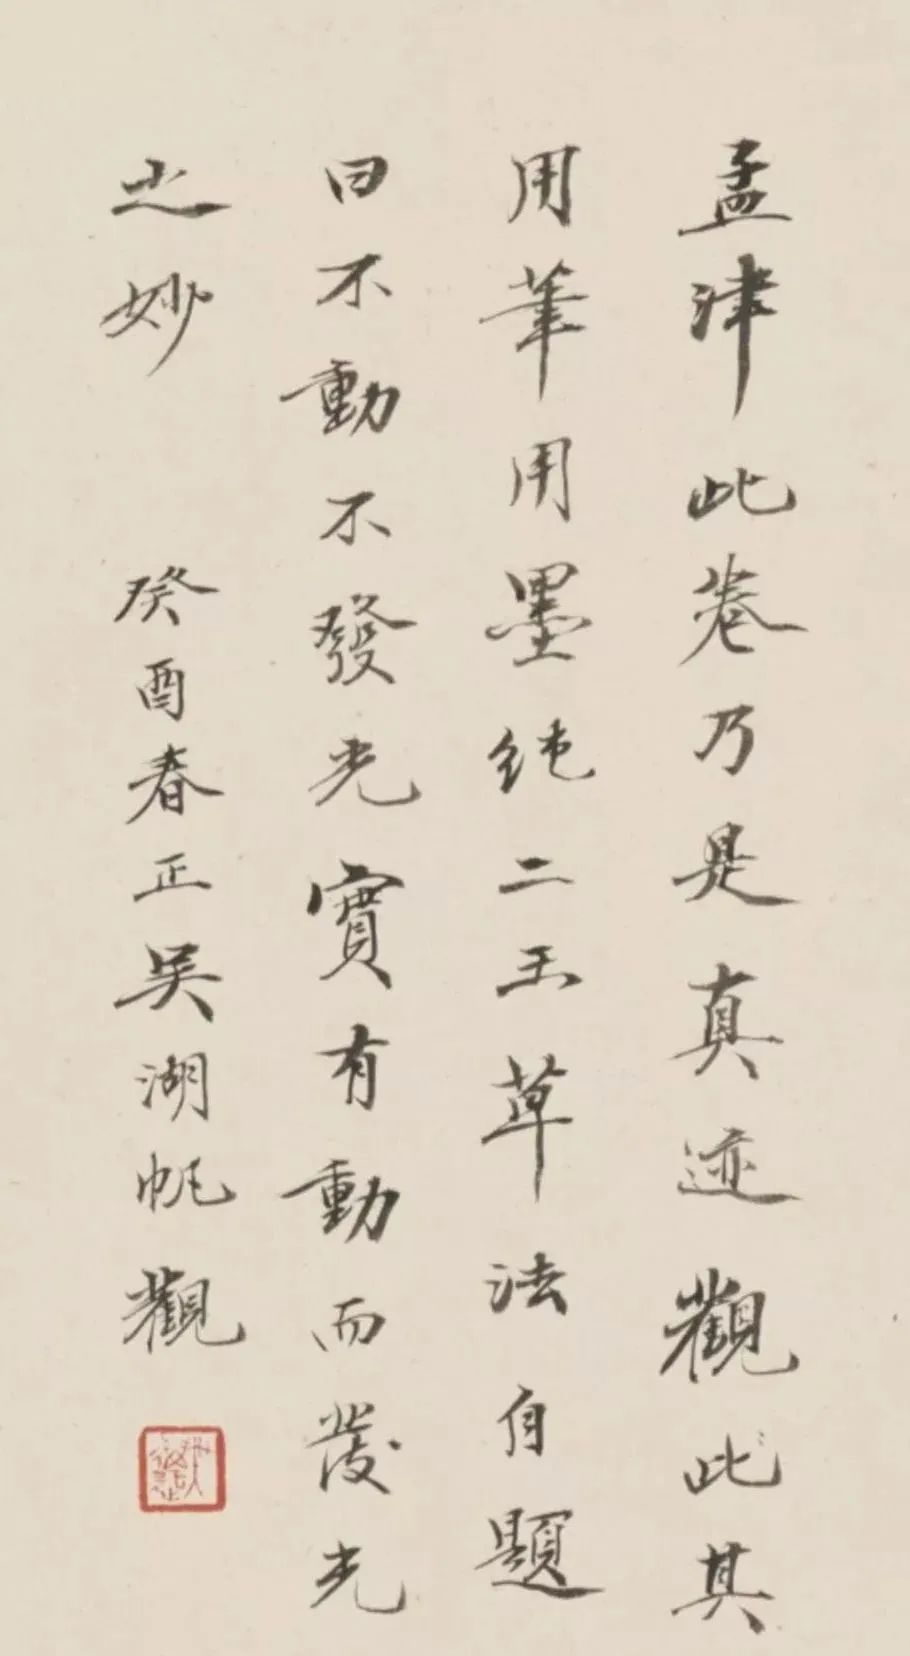 孟津此卷乃是真迹觀此其
用筆用墨純二王草法自題
曰不動不發光實有動而發光
之妙
癸酉春正吳湖帆觀